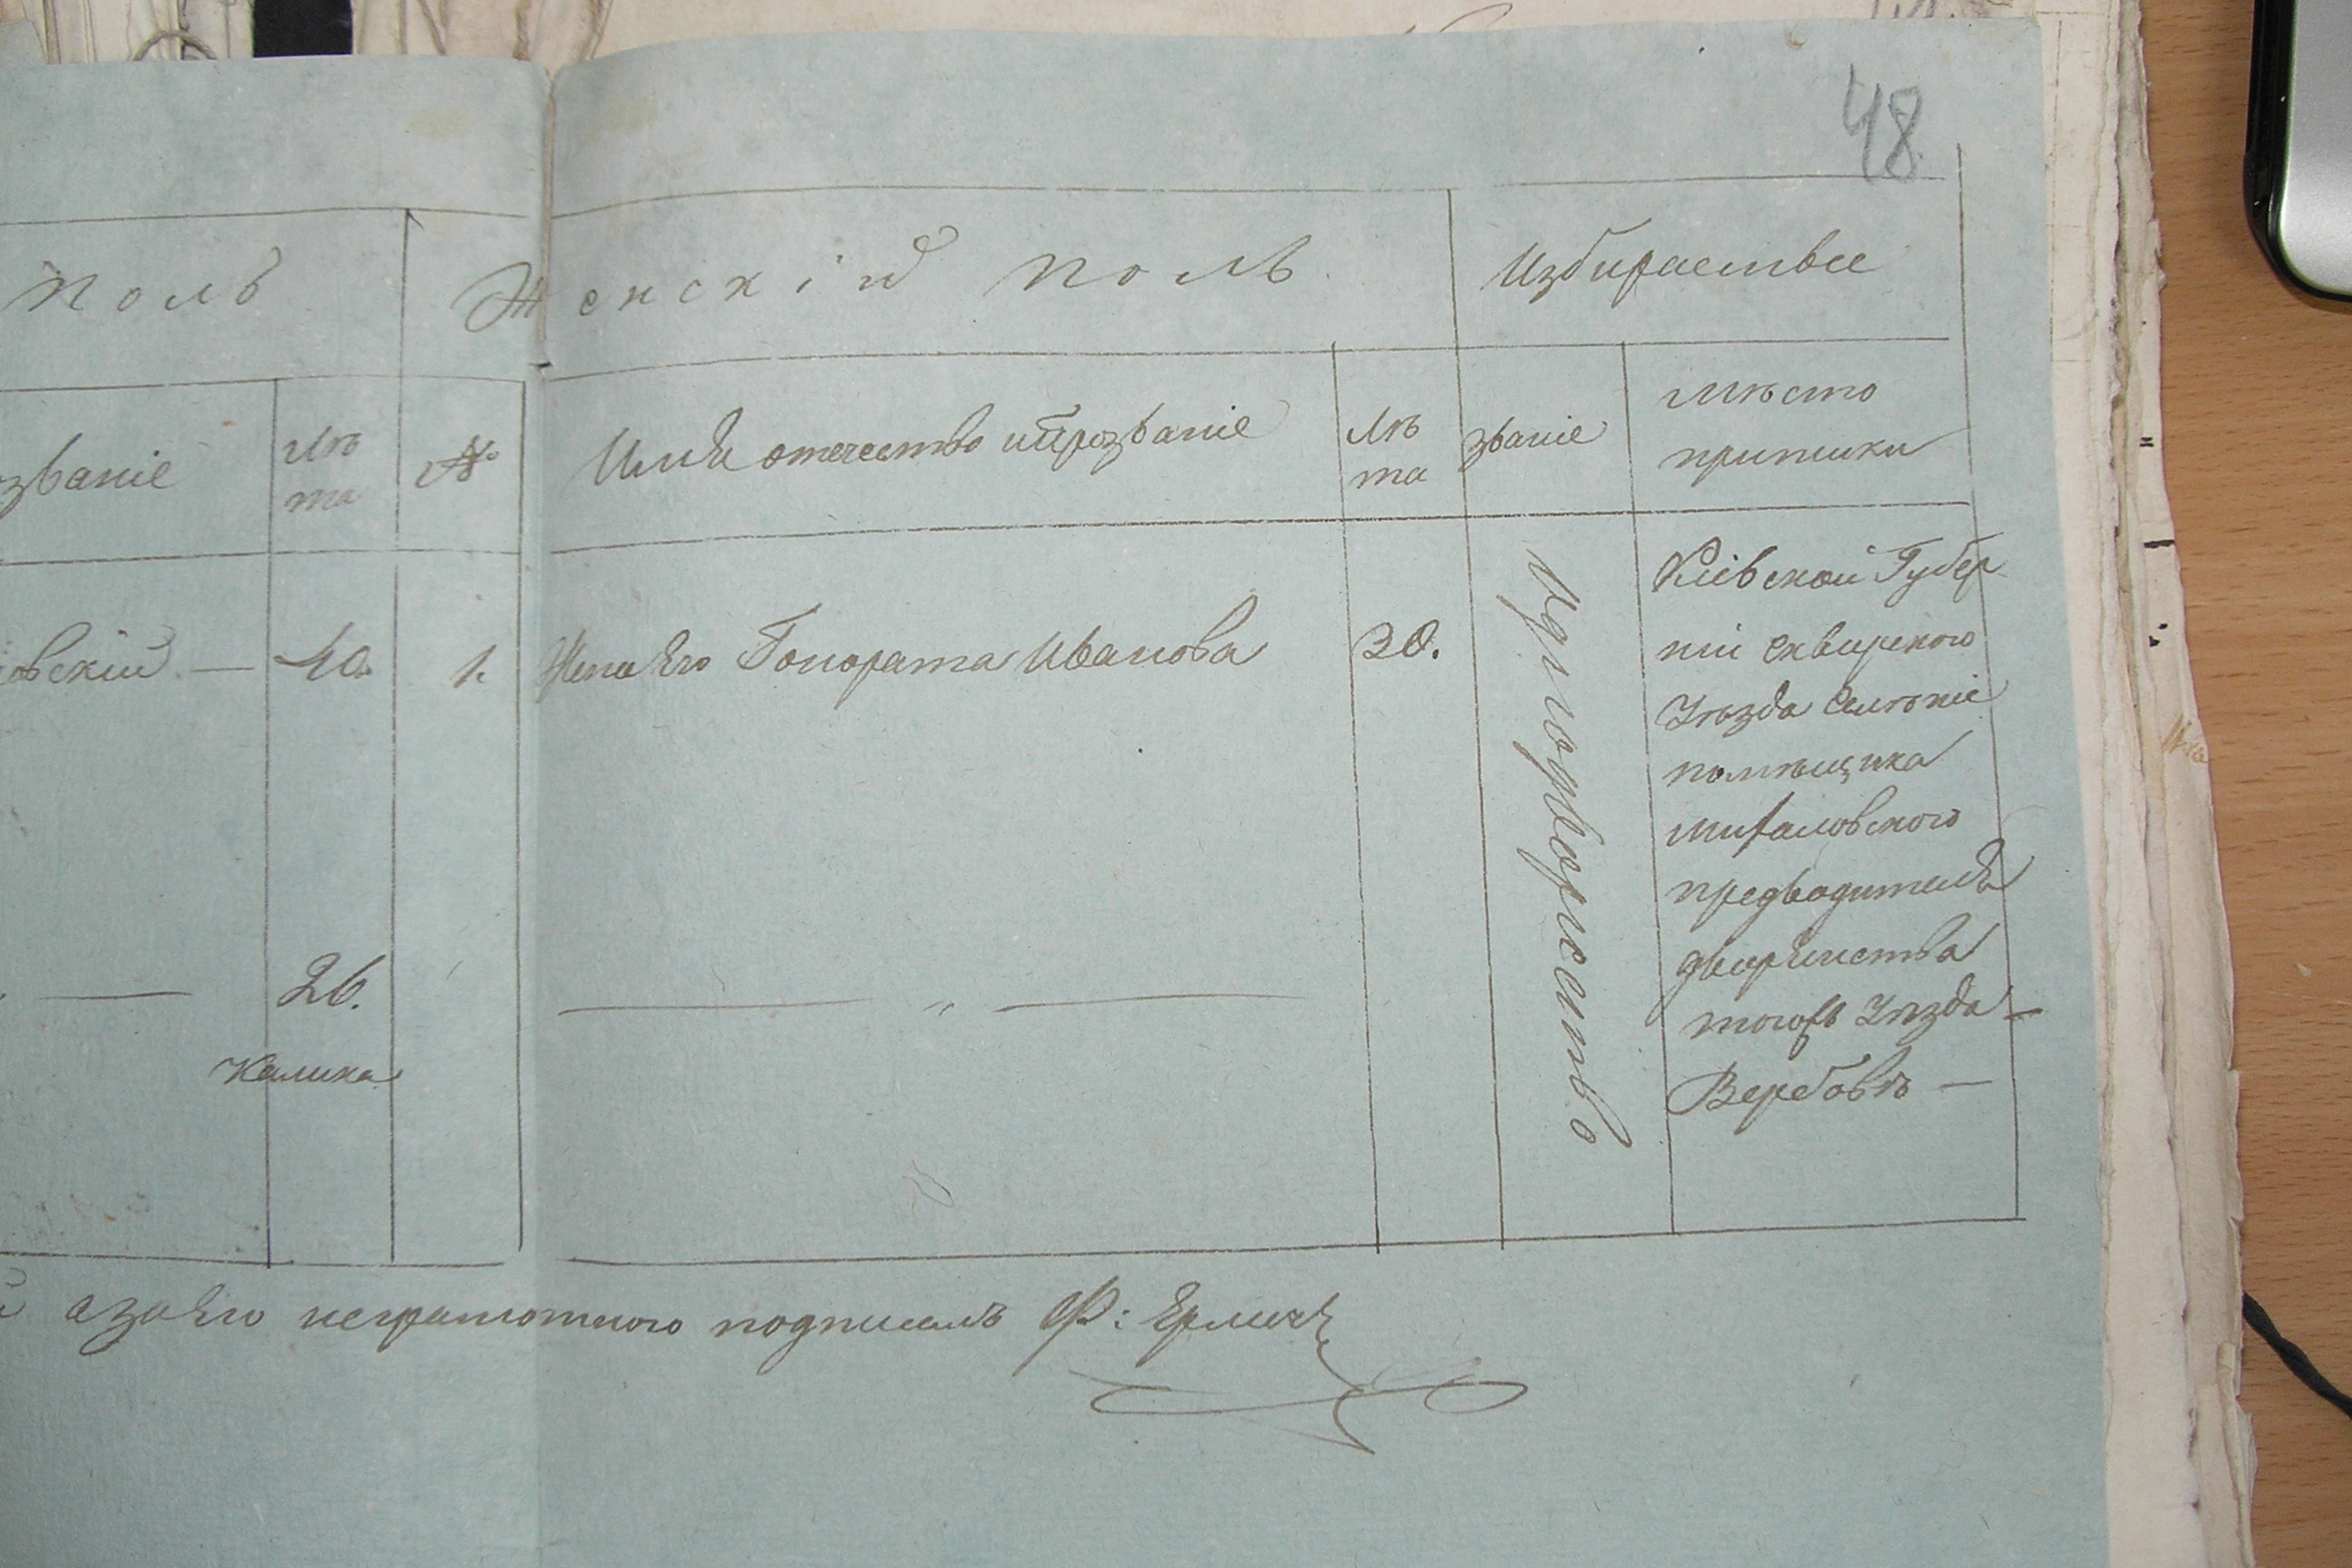 48
полъ
Женскій полъ
Избираетъ
званіе
Лѣ
та
№
Имя отечество и прозваніе
Лѣ
та
званіе
Мѣсто
приписки
овскій — 40.
1.
Жена его Гонората Иванова
30.
Однодворчество
Кіевской Губер
ніи Сквирского
Уѣзда
помѣщика
Михаловского
предводителя
дворянства
тогожъ Уѣзда —
Вербовкѣ —
— 26.
— „ —
Калика
а за его неграмотного подписалъ Ф: Ерличъ